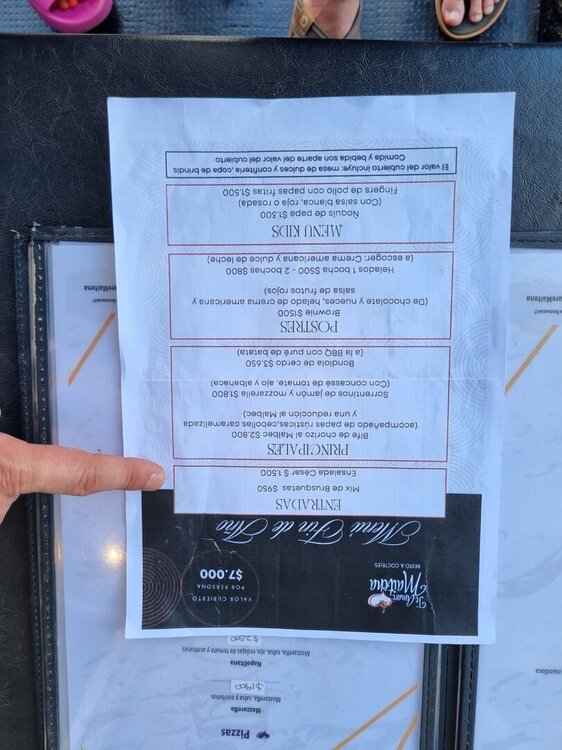 Te Amaré
Maitena
RESTO & COCTELES
VALOR CUBIERTO
POR PERSONA
$7.000
Menú Fin de Año
ENTRADAS
Mix de Brusquetas $950
Ensalada César $1.500
PRINCIPALES
Bife de chorizo al Malbec $2.800
(acompañado de papas rústicas,cebollas caramelizada
y una reducción al Malbec)
Sorrentinos de jamón y mozzarella $1.800
(Con concasse de tomate, ajo y albahaca)
Bondiola de cerdo $3.650
(a la BBQ con puré de batata)
POSTRES
Brownie $1500
(De chocolate y nueces, helado de crema americana y
salsa de frutos rojos)
Helados 1 bocha $500 - 2 bochas $800
(a escoger: Crema americana y dulce de leche)
MENU KIDS
Ñoquis de papa $1.300
(Con salsa blanca, roja o rosada)
Fingers de pollo con papas fritas $1.500
El valor del cubierto incluye: mesa de dulces y confitería, copa de brindis
Comida y bebida son aparte del valor del cubierto
Pizzas
Mozzarella
Mozzarella, salsa y aceitunas
$1900
Napolitana
Mozzarella, salsa, ajo, rodajas de tomate y aceitunas
$2200
areMaitena